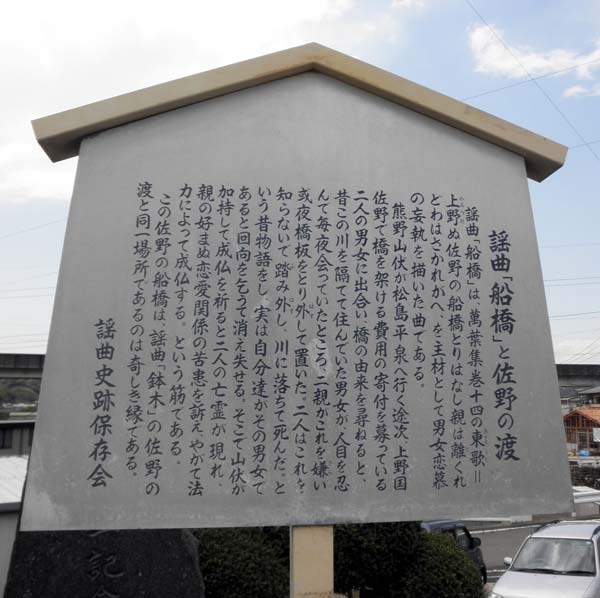 謡曲「船橋」と佐野の渡
謡曲「船橋」は、萬葉集巻十四の東歌＝
上野ぬ佐野の船橋とりはなし親は離くれ
どわはさかれかへ、を主材として男女恋慕
の妄執を描いた曲である。
熊野山伏が松島平泉へ行く途次、上野国
佐野で橋を架ける費用の寄付を募っている
二人の男女に出合い橋の由来を尋ねると、
昔この川を隔てて住んでいた男女が、人目を忍
んで毎夜会っていたところ、二親がこれを嫌い
或夜橋板をとり外して置いた。二人はこれを
知らないで踏み外し、川に落ちて死んだ、と
いう昔物語をし、実は自分達がその男女で
あると回向を乞うて消え失せる。そこで山伏が
加持して成仏を祈ると二人の亡霊が現れ、
親の好まぬ恋愛関係の苦患を訴え、やがて法
力によって成仏する。という筋である。
この佐野の船橋は、謡曲「鉢木」の佐野の
渡と同一場所であるのは奇しき縁である。
謡曲史跡保存会
記念